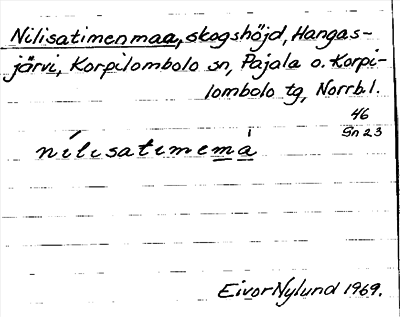 Nilisatimenmaa, skogshöjd, Hangas-
järvi, Korpilombolo sn, Pajala o. Korpi-
lombolo tg, Norrb. l.
46
Gn 23
nílisatimemȧ
Eivor Nylund 1969.